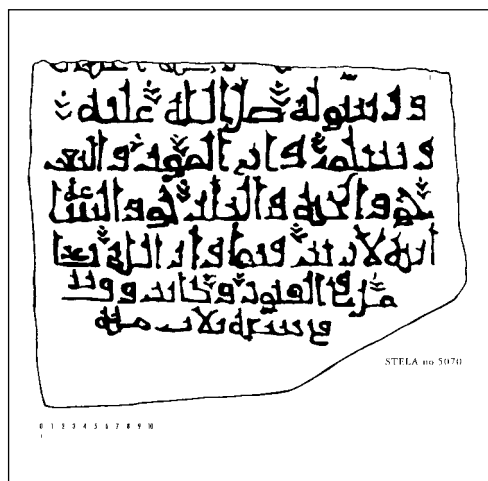 ورسوله صلى الله عليه
وسلم وان الموت والبعث
حق والجنة والنار حق والساعة
اتية لا ريب فيها وان الله يبعث
من في القبور وكانت
في سنة ثلاث مئة
STELA no 5070
0 1 2 3 4 5 6 7 8 9 10